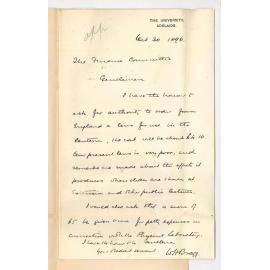 app
THE UNIVERSITY,
ADELAIDE.
Oct 30 1896
The Finance Committee
Gentlemen
I have the honour to
ask for authority to order from
England a lens for use in the
lantern, the cost will be about £4.10.
Our present lens is very poor, and
remarks are made about the effects it
produces when slides are shewn at
and other public lectures.
I would also ask that a sum of
£5 be given me for petty expenses in
connection with the Physical Laboratory.
I have the honour to be Gentlemen
Your obedient servant
W H Bragg